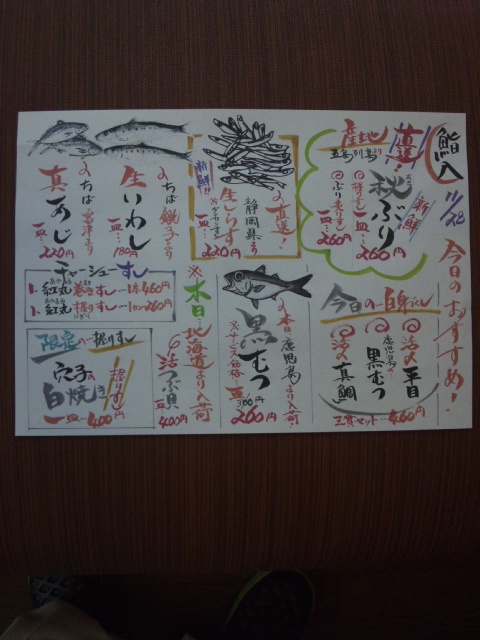 鮨人
11/28
今日のおすすめ!
産地直送!
五島列島より
秋ぶり
新鮮
握りすし
一皿…260円
ぶり炙りすし
一皿…260円
直送!
静岡県より
生しらす
新鮮!!
一皿…220円
ちば銚子より
生いわし
一皿…180円
ちば富津より
真あじ
一皿…220円
今日の白身にし
活〆平目
鹿児島の黒むつ
活〆真鯛
三貫セット…460円
本日鹿児島より入荷!
黒むつ
※サービス価格
一皿
300円
260円
※本日北海道より入荷
活つぶ貝
400円
チャーシューすし
1、紅丸巻きすし…1本460円
1、紅丸握りすし…1かん260円
限定の…握りすし
穴子の白焼き
握りすし
一皿…400円